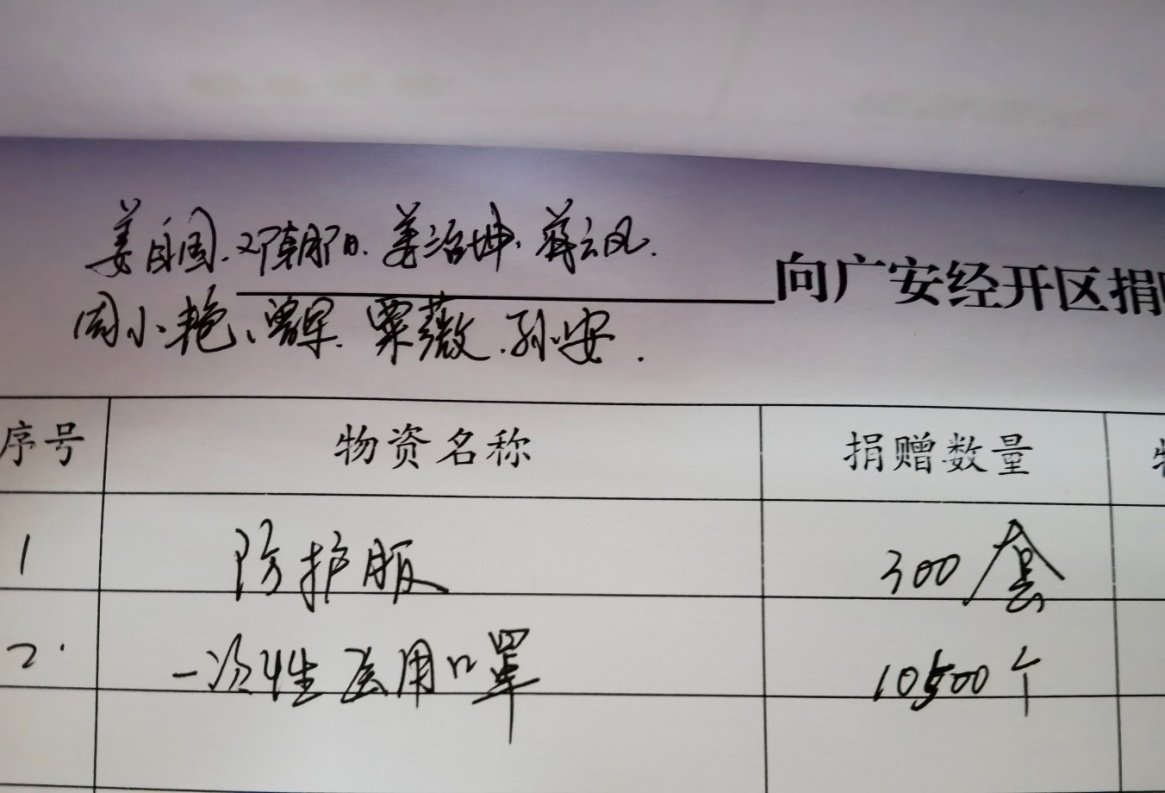 姜自国.邓朝阳.姜治坤.蒋云凤.
向广安经开区捐
周小艳、曾军.粟薇.孙安.
序号 物资名称 捐赠数量
1 防护服 300套
2. 一次性医用口罩 10500个